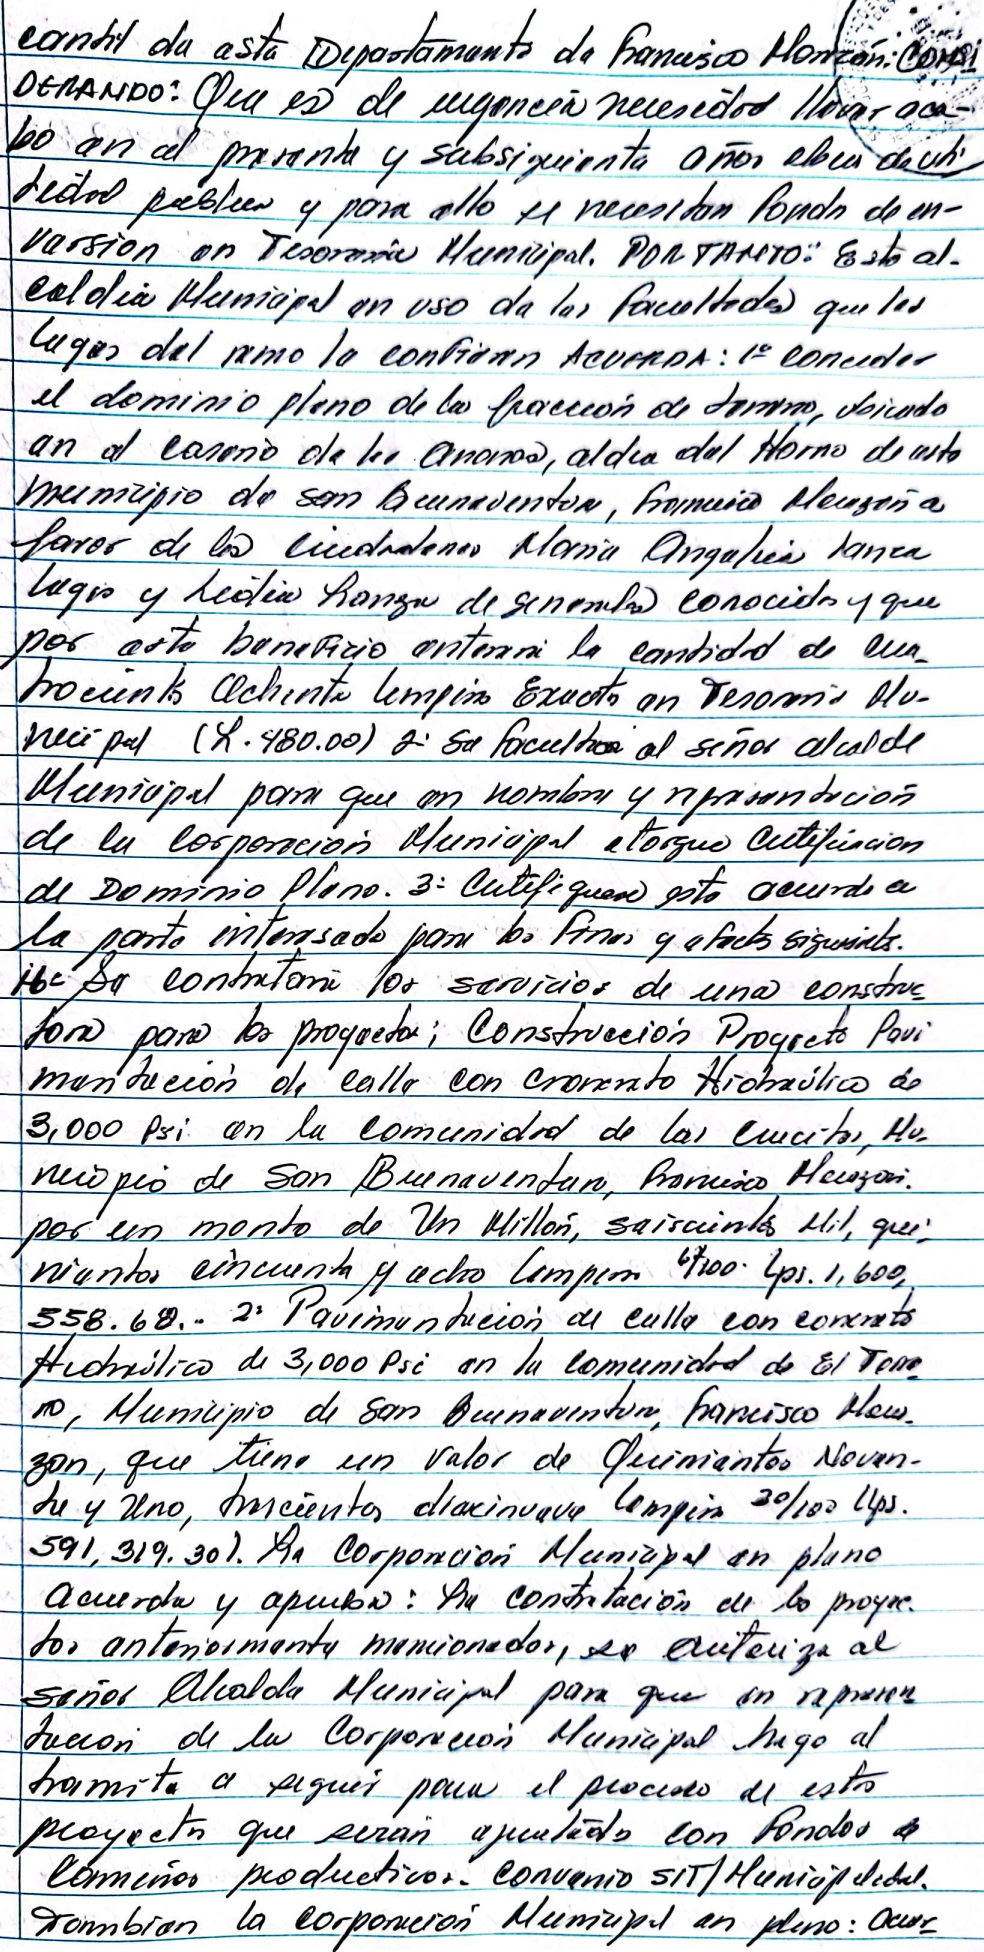 cantil de este Departamento de Francisco Morazán: CONSI
DERANDO: Que es de urgencia necesidad llevar aca-
bo en el presente y subsiguiente años obras de uti
lidad publica y para ello se necesitan fondos de in-
version en Tesoreria Municipal. POR TANTO: Esta al-
caldia Municipal en uso de las facultades que las
Leyes del ramo le confieren ACUERDA: 1º Conceder
el dominio pleno de la fracción de terreno, ubicado
en el caserio de los Anonos, aldea del Horno de este
municipio de San Buenaventura, Francisco Morazán a
favor de las ciudadanas Maria Angelica Lanza
Lagos y Lidia Lanza de generales conocidas y que
por este beneficio enterara la cantidad de Cua-
trocientos Ochenta lempiras Exactos en Tesoreria Mu-
nicipal (L. 480.00) 2º Se faculta al señor alcalde
Municipal para que en nombre y representación
de la Corporación Municipal otorgue Certificacion
de Dominio Pleno. 3º Certifiquese este acuerdo a
la parte interesada para los fines y efectos siguientes.
16- Se contratara los servicios de una construc
tora para los proyectos; Construcción Proyecto Pavi
mentación de calle con concreto Hidraúlico de
3,000 Psi en la comunidad de las crucitas, Mu-
nicipio de San Buenaventura, Francisco Morazán.
por un monto de Un Millón, seiscientos Mil, qui-
nientos cincuenta y ocho lempiras 67/100. Lps. 1,600,
558.68.. 2º Pavimentación de calle con concreto
Hidraúlico de 3,000 Psi en la comunidad de El Terre
ro, Municipio de San Buenaventura, Francisco Mora-
zan, que tiene un valor de Quinientos Noven-
ta y Uno, trescientos diecinueve lempiras 30/100 Lps.
591,319.30). La Corporación Municipal en pleno
Acuerda y aprueba: La contratación de los proyec-
tos anteriormente mencionados, se autoriza al
señor Alcalde Municipal para que en represen
tacion de la Corporación Municipal haga el
tramite a seguir para el proceso de estos
proyectos que serán ejecutados con fondos de
Caminos productivos. Convenio SIT/Municipalidad.
Tambien la Corporación Municipal en pleno: Acuer